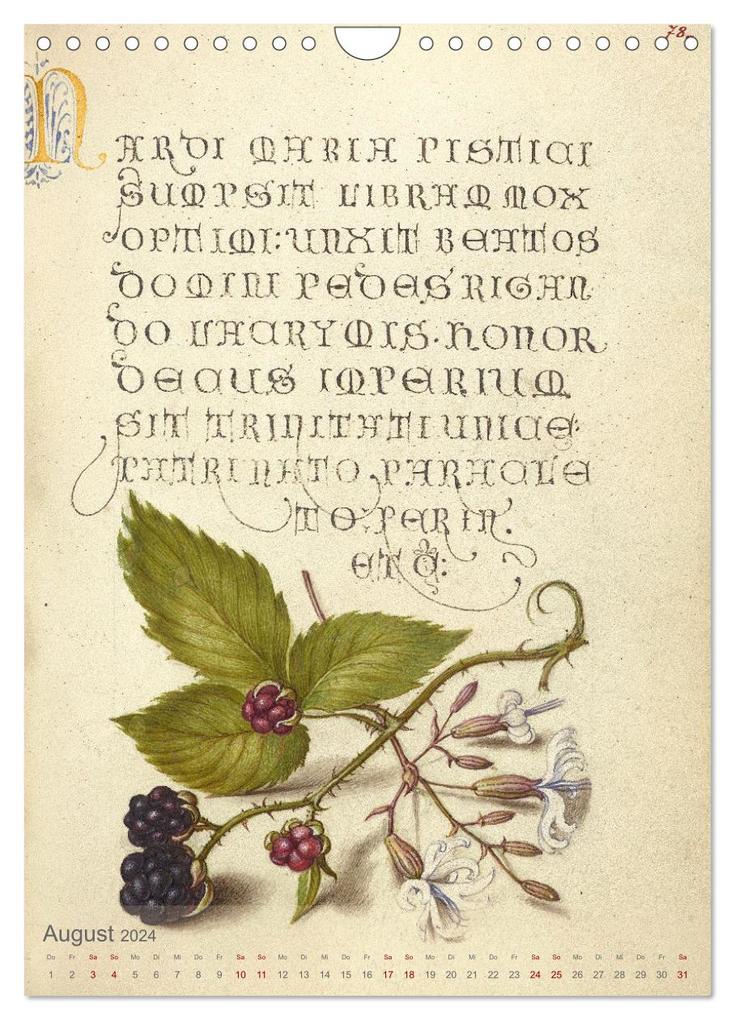 78.
NARDI MARIA PISTICI
SUMPSIT LIBRAM MOX
OPTIMI: UNXIT BEATOS
DOMINI PEDES RIGAN
DO LACRYMIS. HONOR
DECUS IMPERIUM
SIT TRINITATI UNICE:
PATRI NATO, PARACLE
TO: PER IN.
ET Q:
August 2024
Do Fr Sa So Mo Di Mi Do Fr Sa So Mo Di Mi Do Fr Sa So Mo Di Mi Do Fr Sa So Mo Di Mi Do Fr Sa
1 2 3 4 5 6 7 8 9 10 11 12 13 14 15 16 17 18 19 20 21 22 23 24 25 26 27 28 29 30 31